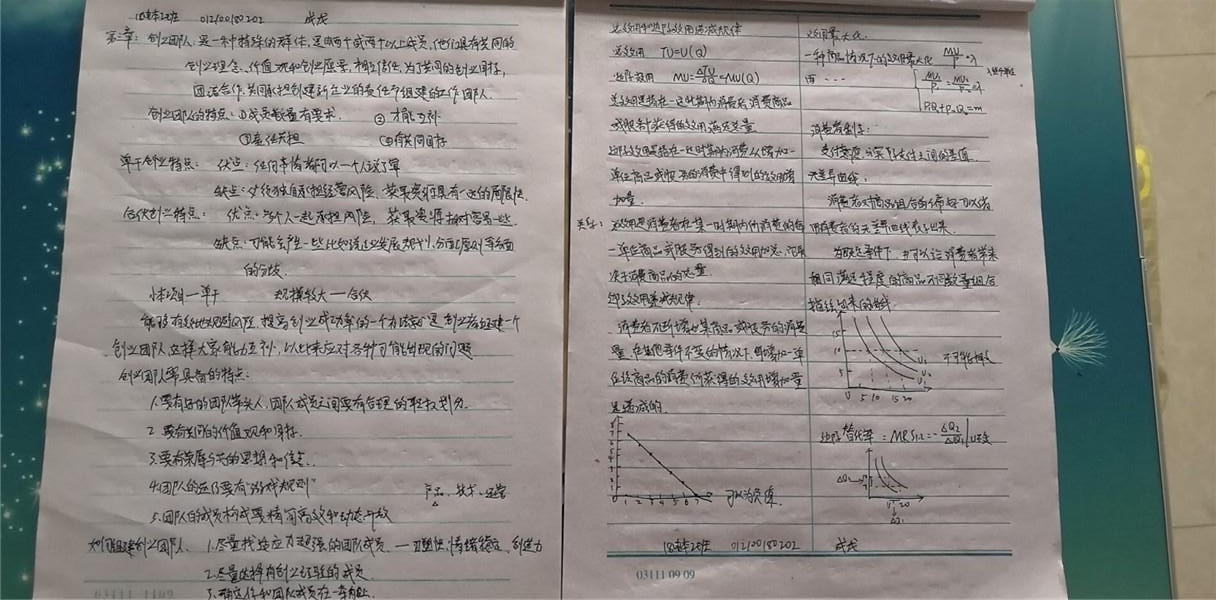 012100180202 成龙
第三章：创业团队：是一种特殊的群体，是由两个或两个以上成员，他们具有共同的
创业理念、价值观和创业愿景，相互信任，为了共同的创业目标，
团结合作，共同承担创建新企业的责任而组建的工作团队。
创业团队的特点：①成员数量有要求. ②才能互补
③责任共担 ④有共同目标
单干创业特点： 优点：任何事情都可以一个人说了算
缺点：必须独自承担经营风险，获取资源具有一定的局限性
合伙创业特点： 优点：多个人一起承担风险，获取资源相对容易一些
缺点：可能会产生一些比如说企业发展规划、分配原则等方面
的分歧
小项目—单干 规模较大—合伙
能够有效地规避风险，提高创业成功率的一个方法就是创业者组建一个
创业团队，这样大家能力互补，以此来应对各种可能出现的问题
创业团队需具备的特点：
1.要有好的团队带头人，团队成员之间要有合理的职权划分.
2.要有共同的价值观和目标.
3.要有荣辱与共的思想和信念.
4.团队的运行要有“游戏规则”
产品、技术、运营
5.团队的成员构成要精简高效和动态开放
如何组建创业团队. 1.尽量找适应力超强的团队成员. — 可塑性，情绪稳定，创造力
2.尽量选择有创业经验的成员
3.确定你和团队成员在一条船上.
总效用和边际效用递减规律
总效用 TU=U(Q)
边际效用 MU=ΔTU/ΔQ=MU(Q)
总效用是指在一定时期内消费者消费商品
或服务获得的效用满足总量
边际效用是指在一定时期内消费者增加一
单位商品或服务的消费中得到的效用增
加量.
关系： 总效用是消费者在某一时期内所消费的每
一单位商品或服务得到的效用加总，它取
决于消费商品的总量
边际效用递减规律.
消费者不断增加某商品或服务的消费
量，在其他条件不变的情况下，每增加一单
位该商品的消费所获得的效用增加量
是递减的
1 2 3 4 5 6 7
可以为负像.
效用最大化.
一种商品情况下的效用最大化 MU/P=λ
两 ----
MU₁/P₁=MU₂/P₂=λ
P₁Q₁+P₂Q₂=m
消费者剩余：
支付意愿与实际支付之间的差值
无差异曲线：
消费者对商品组合的偏好可以借
用消费者的无差异曲线表示出来.
相同满足程度的商品不同数量组合
描绘出来的曲线
15
10
5
0 5 10 15 20
不可能相交
边际替代率：MRS₁₂=-ΔQ₂/ΔQ₁|U不变
ΔQ₂
ΔQ₁
012100180202 成龙
03111 09 09